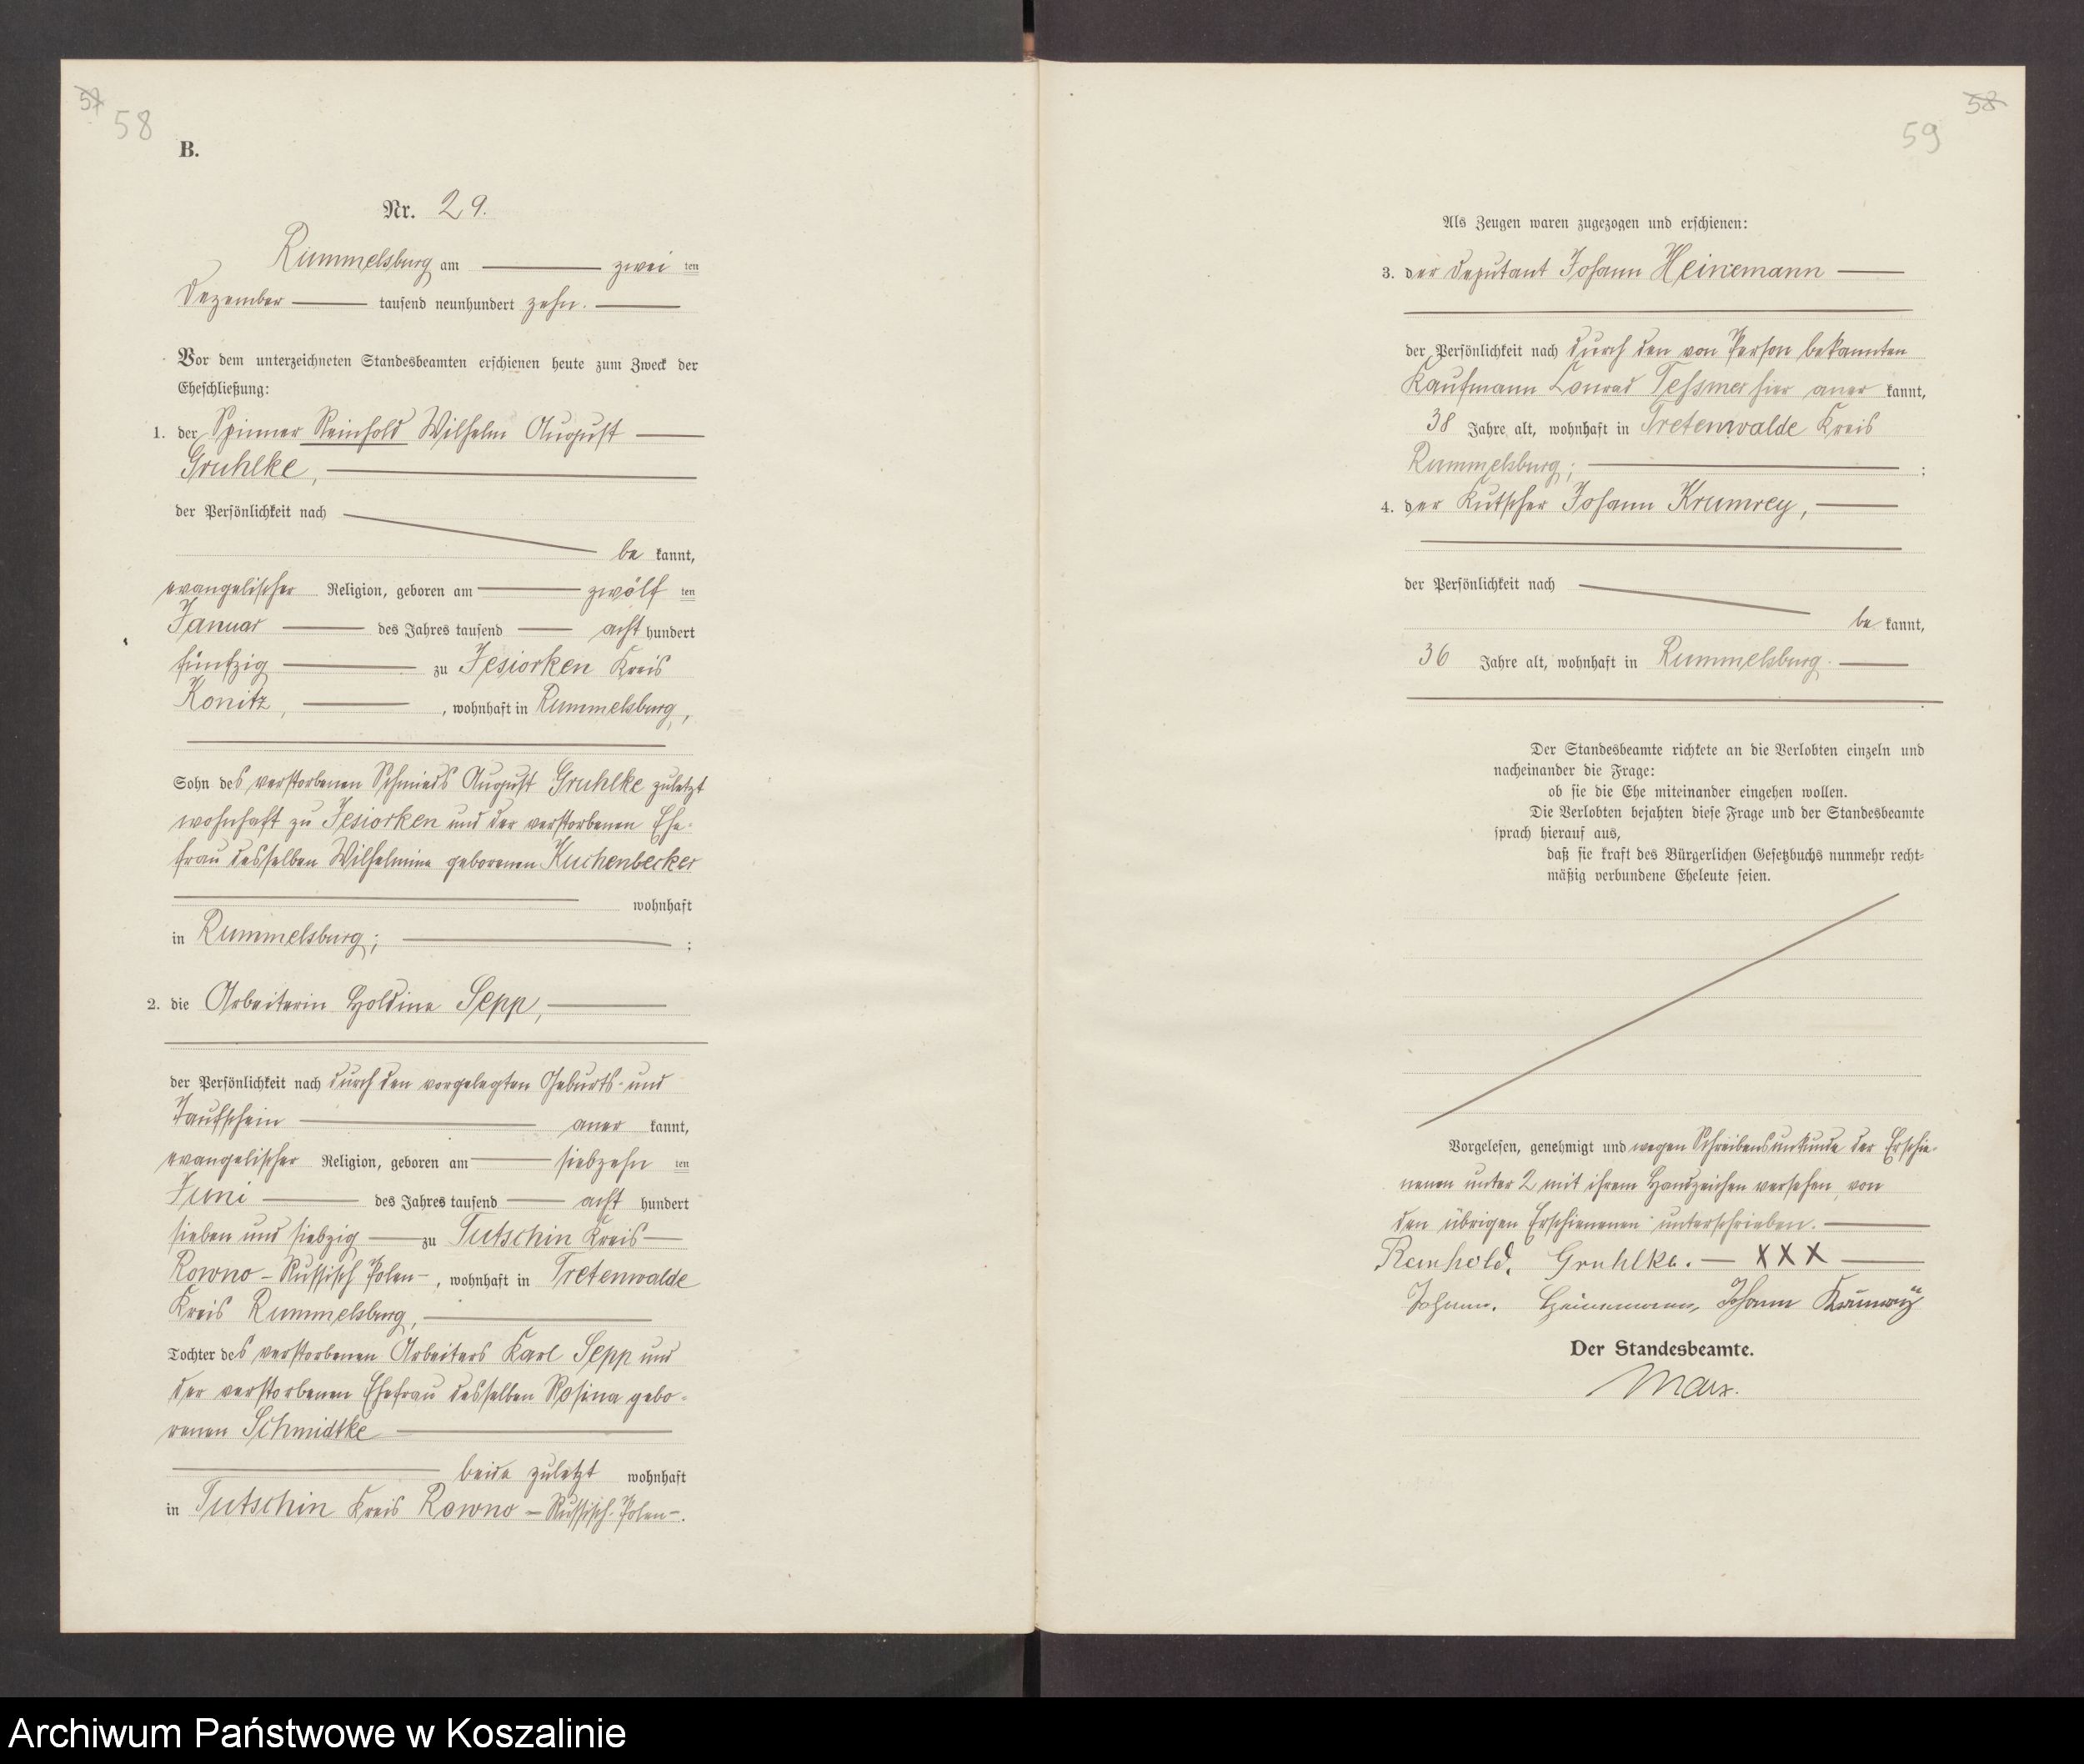 57
58
B.
Nr. 29.
Rummelsburg am zwei ten
Dezember tausend neunhundert zehn.
Vor dem unterzeichneten Standesbeamten erschienen heute zum Zweck der
Eheschließung:
1. der Spinner Reinhold Wilhelm August
Gruhlke,
der Persönlichkeit nach
be kannt,
evangelischer Religion, geboren am zwölf ten
Januar des Jahres tausend acht hundert
fünfzig zu Jesiorken Kreis
Konitz, , wohnhaft in Rummelsburg,
Sohn des verstorbenen Schmieds August Gruhlke zuletzt
wohnhaft zu Jesiorken und der verstorbenen Ehe-
frau desselben Wilhelmine geborenen Kuchenbecker
wohnhaft
in Rummelsburg; ;
2. die Arbeiterin Holdine Sepp,
der Persönlichkeit nach durch den vorgelegten Geburts- und
Taufschein aner kannt,
evangelischer Religion, geboren am siebzehn ten
Juni des Jahres tausend acht hundert
sieben und siebzig zu Tutschin Kreis
Rowno - Russisch Polen -, wohnhaft in Tretenwalde
Kreis Rummelsburg,
Tochter des verstorbenen Arbeiters Karl Sepp und
der verstorbenen Ehefrau desselben Rosina gebo-
renen Schmidtke
beide zuletzt wohnhaft
in Tutschin Kreis Rowno - Russisch-Polen -.
58
59
Als Zeugen waren zugezogen und erschienen:
3. der Deputant Johann Heinemann
der Persönlichkeit nach durch den von Person bekannten
Kaufmann Conrad Tessmer hier aner kannt,
38 Jahre alt, wohnhaft in Tretenwalde Kreis
Rummelsburg; ;
4. der Kutscher Johann Krumrey,
der Persönlichkeit nach
be kannt,
36 Jahre alt, wohnhaft in Rummelsburg.
Der Standesbeamte richtete an die Verlobten einzeln und
nacheinander die Frage:
ob sie die Ehe miteinander eingehen wollen.
Die Verlobten bejahten diese Frage und der Standesbeamte
sprach hierauf aus,
daß sie kraft des Bürgerlichen Gesetzbuchs nunmehr recht-
mäßig verbundene Eheleute seien.
Vorgelesen, genehmigt und wegen Schreibensunkunde der Erschie-
nenen unter 2 mit ihrem Handzeichen versehen, von
den übrigen Erschienenen unterschrieben.
Reinhold. Gruhlke. — XXX
Johann. Heinemann, Johann Krumrey
Der Standesbeamte.
Marx.
Archiwum Państwowe w Koszalinie